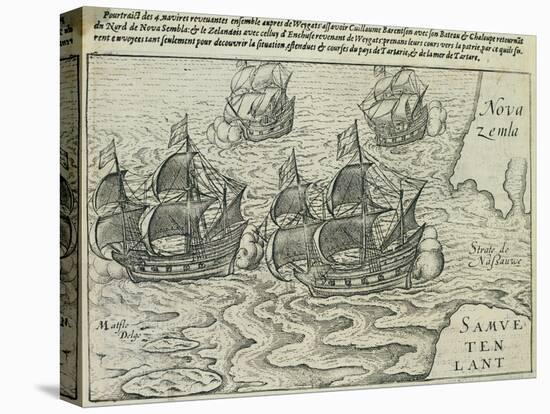 Pourtraict des 4. navires revenantes ensemble aupres de Weygats assavoir Guillaume Barentson avec son Bateau & Chaloupe retournāt
du Nord de Nova Sembla: & le Zelandois avec celluy d'Enchuse revenant de Weygats: prenans leurs cours vers la patrie, par ce quils fu
rent envoyees tant seulement pour decouvrir la situation, estendues & courses du pays de Tartarie, & de la mer de Tartare.
Nova
Zemla
Strate de
Nassauwe
Matflo
Delgo
SAMVE
TEN
LANT